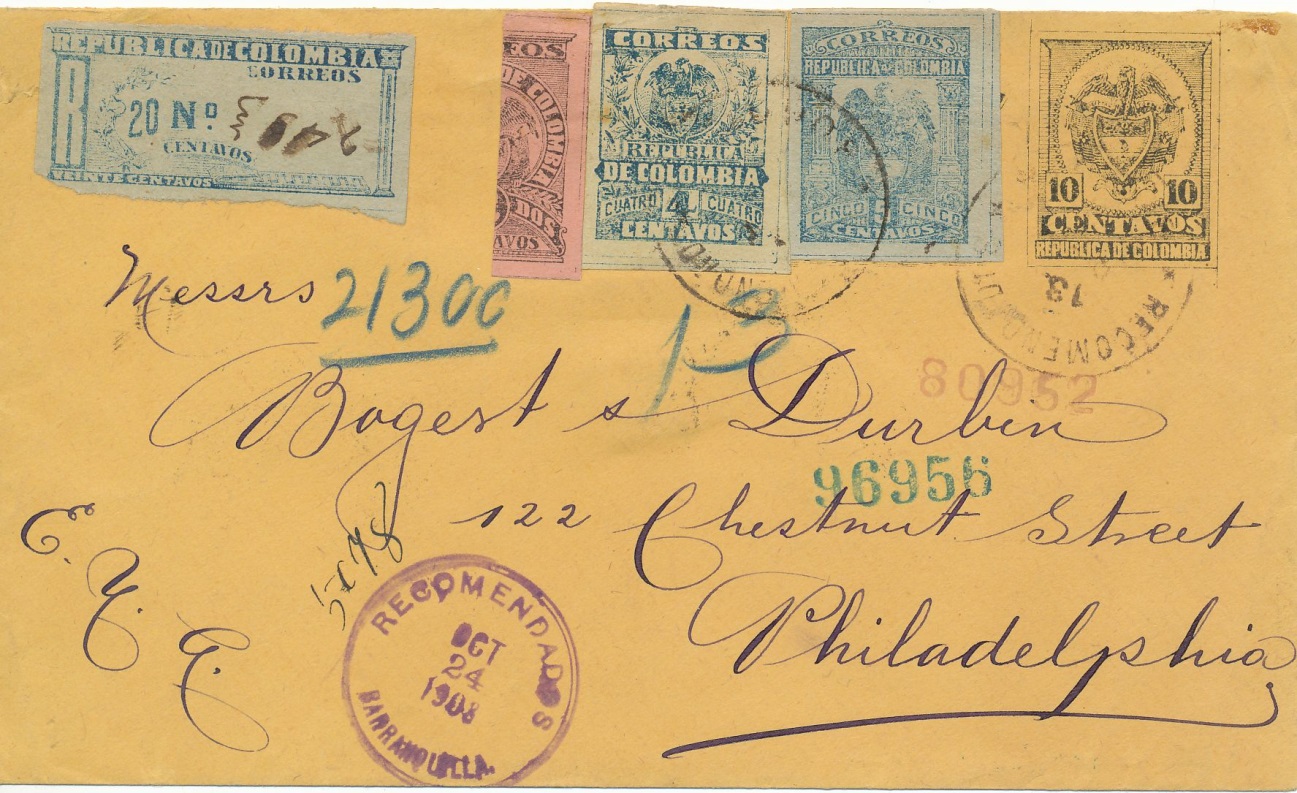 REPUBLICA DE COLOMBIA
CORREOS
R
20 Nº 240
CENTAVOS
VEINTE CENTAVOS
REOS
DE COLOMBIA
DOS
AVOS
CORREOS
REPUBLICA
DE COLOMBIA
CUATRO 4 CUATRO
CENTAVOS
CORREOS
REPUBLICA DE COLOMBIA
CINCO 5 CINCO
CENTAVOS
10 10
CENTAVOS
REPUBLICA DE COLOMBIA
13
RECOMEND
Messrs
21300
13
80952
Bogest & Durben
96956
122 Chestnut Street
Philadelphia
E. U. A.
5178
RECOMENDADOS
OCT
24
1908
BARRANQUILLA.